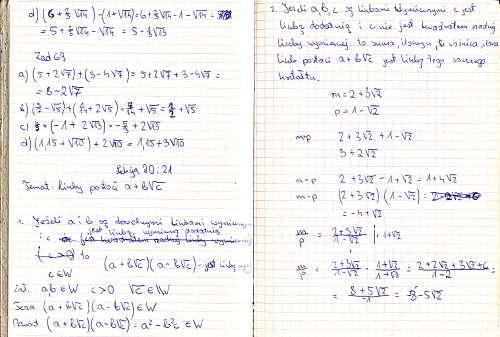 d) (6 + ⅔√14) - (1+√14) = 6 + ⅔√14 - 1 - √14 =
= 5 + ⅔√14 - √14 = 5 -
Zad 69
a) (5 + 2√7) + (3 - 4√7) = 5 + 2√7 + 3 - 4√7 =
= 8 - 2√7
c) (-1 + 2√13) = + 2√13
d) (1,15 + √10) + 2√10 = 1,15 + 3√10
Lekcja 20; 21
Temat: Liczby postaci a + b√c
1. Jeżeli a i b są dowolnymi liczbami
i c jest liczbą wymierną dodatnią
(c > 0) to
c ∈ W (a + b√c)(a - b√c) - jest liczbą
zał. a,b ∈ W c > 0 √c ∈ NW
Teza (a + b√c)(a - b√c) ∈ W
Dowód (a + b√c)(a - b√c) = a² - b²c ∈ W
2. Jeżeli a, b, c są liczbami wymiernymi c jest
liczbą dodatnią i c nie jest kwadratem żadnej
liczby wymiernej to suma, iloczyn, różnica, iloraz
liczb postaci a + b√c jest liczbą tego samego
kształtu.
m = 2 + 3√2
p = 1 - √2
m+p 2 + 3√2 + 1 - √2
3 + 2√2
m-p 2 + 3√2 - 1 + √2 = 1 + 4√2
m·p (2 + 3√2)(1 - √2) =
= -4 + √2
m/p = (2+3√2)/(1-√2) | · 1+√2
m/p = (2+3√2)/(1-√2) · (1+√2)/(1+√2) = (2+2√2+3√2+6)/(1-2) =
= (8+5√2)/-1 = -8-5√2